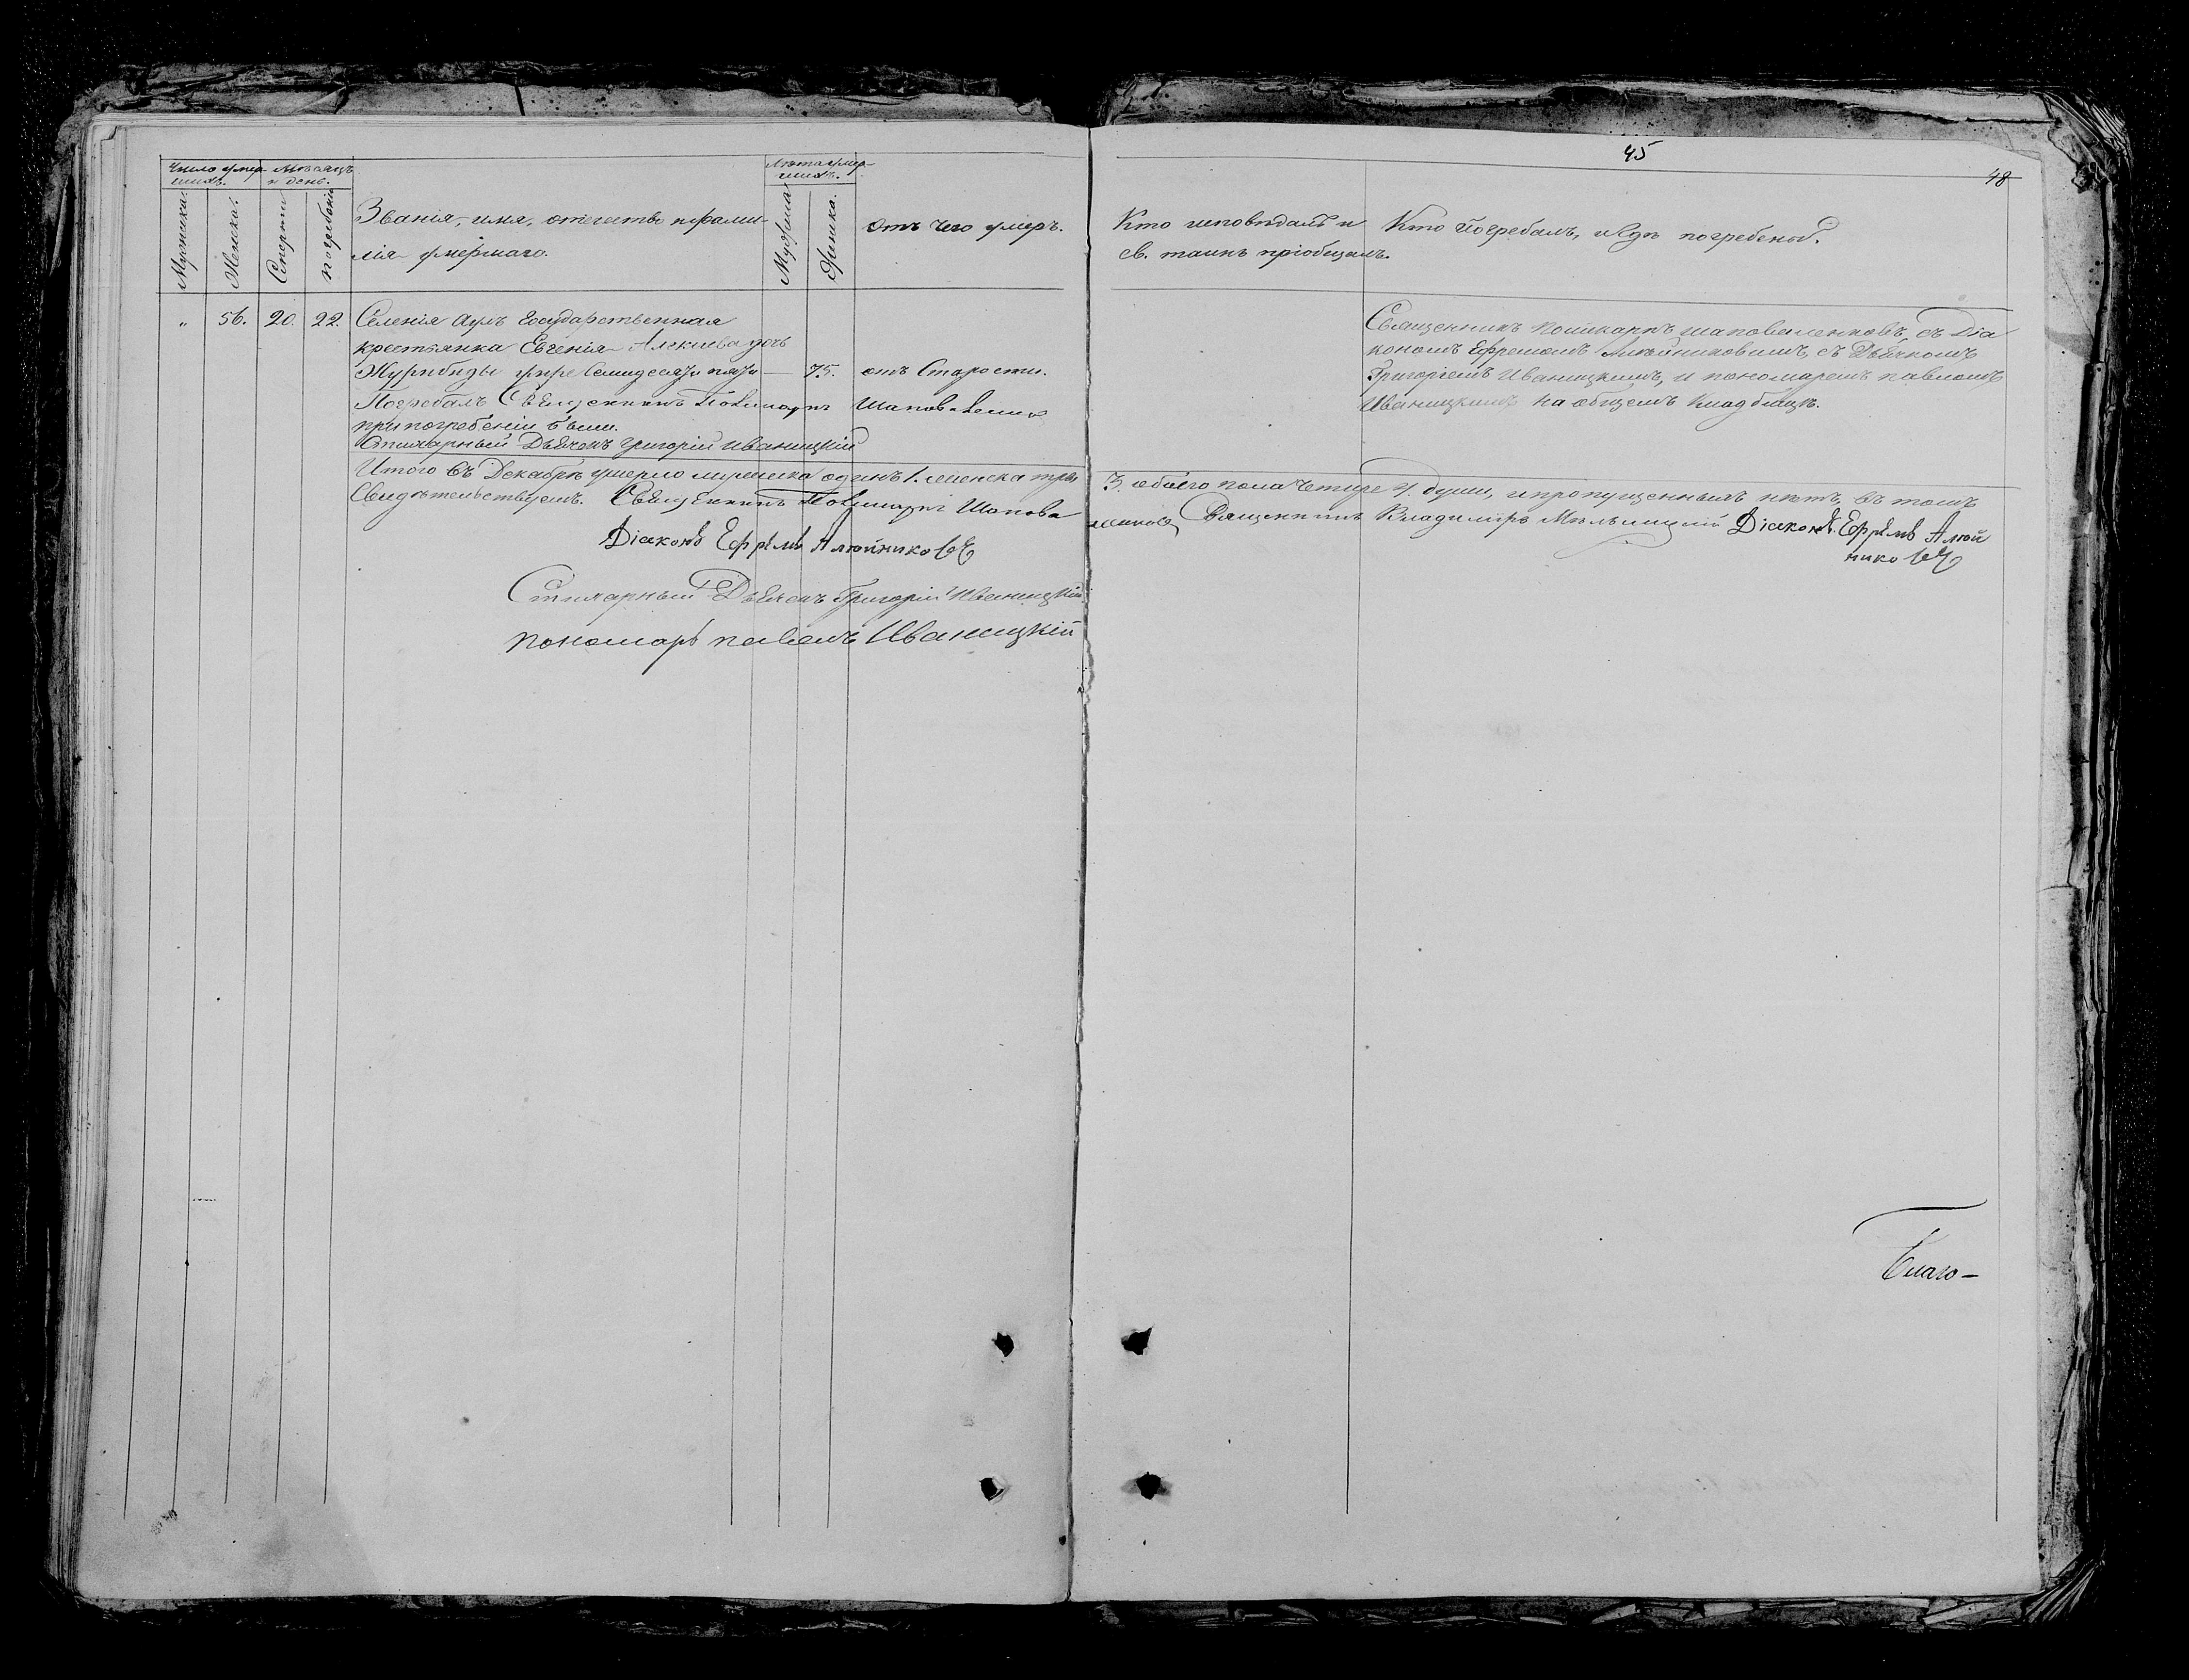 Число умер-
шихъ.
Мѣсяцъ
и день.
Мужеска.
Женска.
Смерти
погребенія
Званія, имя, отечество и фами-
лія умершаго.
Лѣта умер-
шихъ.
Мужеска
Женска.
Отъ чего умеръ.
„ 56. 20. 22. Селенія Аулъ государственная
крестьянка Евгенія Алексіева дочь
75. отъ Старости.
Погребалъ Священникъ Поликарпъ
при погребеніи были.
Стихарный Дьячекъ Григорій Иваницкій
Итого въ Декабрѣ умерло мужеска одинъ 1. женска три
Свидѣтельствуемъ. Священникъ Поликарпъ Шапова
Діаконъ Ефремъ Алейниковъ
Стихарный Дьячекъ Григорій Иваницкій
пономарь павелъ Иваницкій
45
48
Кто исповѣдалъ и
св. таинъ пріобщалъ.
Кто погребалъ, и гдѣ погребены.
Священникъ Поликарпъ шаповаленковъ, съ Діа
кономъ Ефремомъ Алейниковымъ, съ Дьячкомъ
Григоріемъ Иваницкимъ, и пономаремъ павломъ
Иваницкимъ на общемъ кладбищѣ.
3. обоего пола четыре 4. души, и пропущенныхъ нѣтъ, въ томъ
ленковъ
Священникъ Владиміръ Діаконъ Ефремъ Алей
никовъ
Благо-